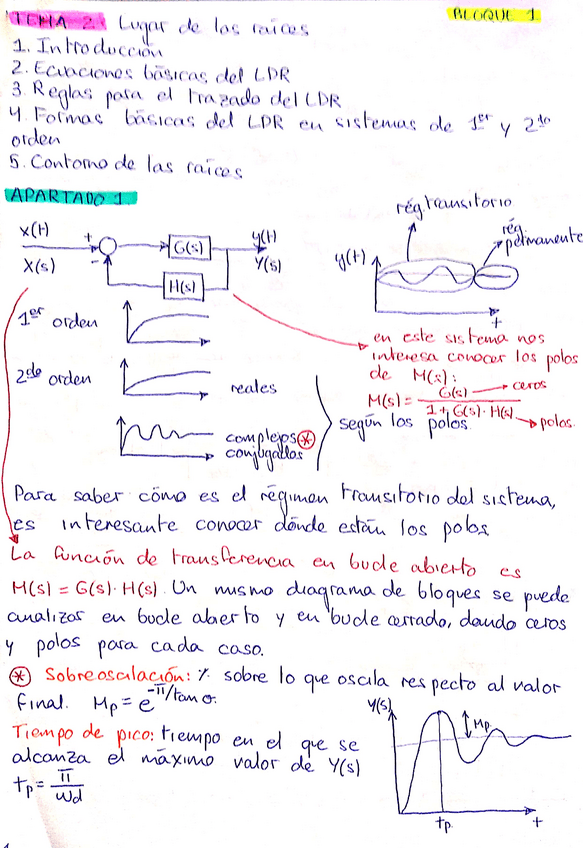 TEMA 2: Lugar de las raíces
BLOQUE 1
1. Introducción
2. Ecuaciones básicas del LDR
3. Reglas para el trazado del LDR
4. Formas básicas del LDR en sistemas de 1er y 2do
orden
5. Contorno de las raíces
APARTADO 1
x(t)
X(s)
+
-
G(s)
H(s)
y(t)
Y(s)
rég transitorio
rég.
permanente
y(t)
t
1er orden
2do orden
reales
complejos *
conjugados
según los polos.
en este sistema nos
interesa conocer los polos
de M(s):
M(s) = G(s) / 1 + G(s)·H(s)
ceros
polos.
Para saber cómo es el régimen transitorio del sistema,
es interesante conocer dónde están los polos
La función de transferencia en bucle abierto es
M(s) = G(s)·H(s). Un mismo diagrama de bloques se puede
analizar en bucle abierto y en bucle cerrado, dando ceros
y polos para cada caso.
* Sobreoscilación: % sobre lo que oscila respecto al valor
final. Mp = e^-π/tan σ.
Tiempo de pico: tiempo en el que se
alcanza el máximo valor de Y(s)
tp = π / ωd
Y(s)
Mp
tp
t